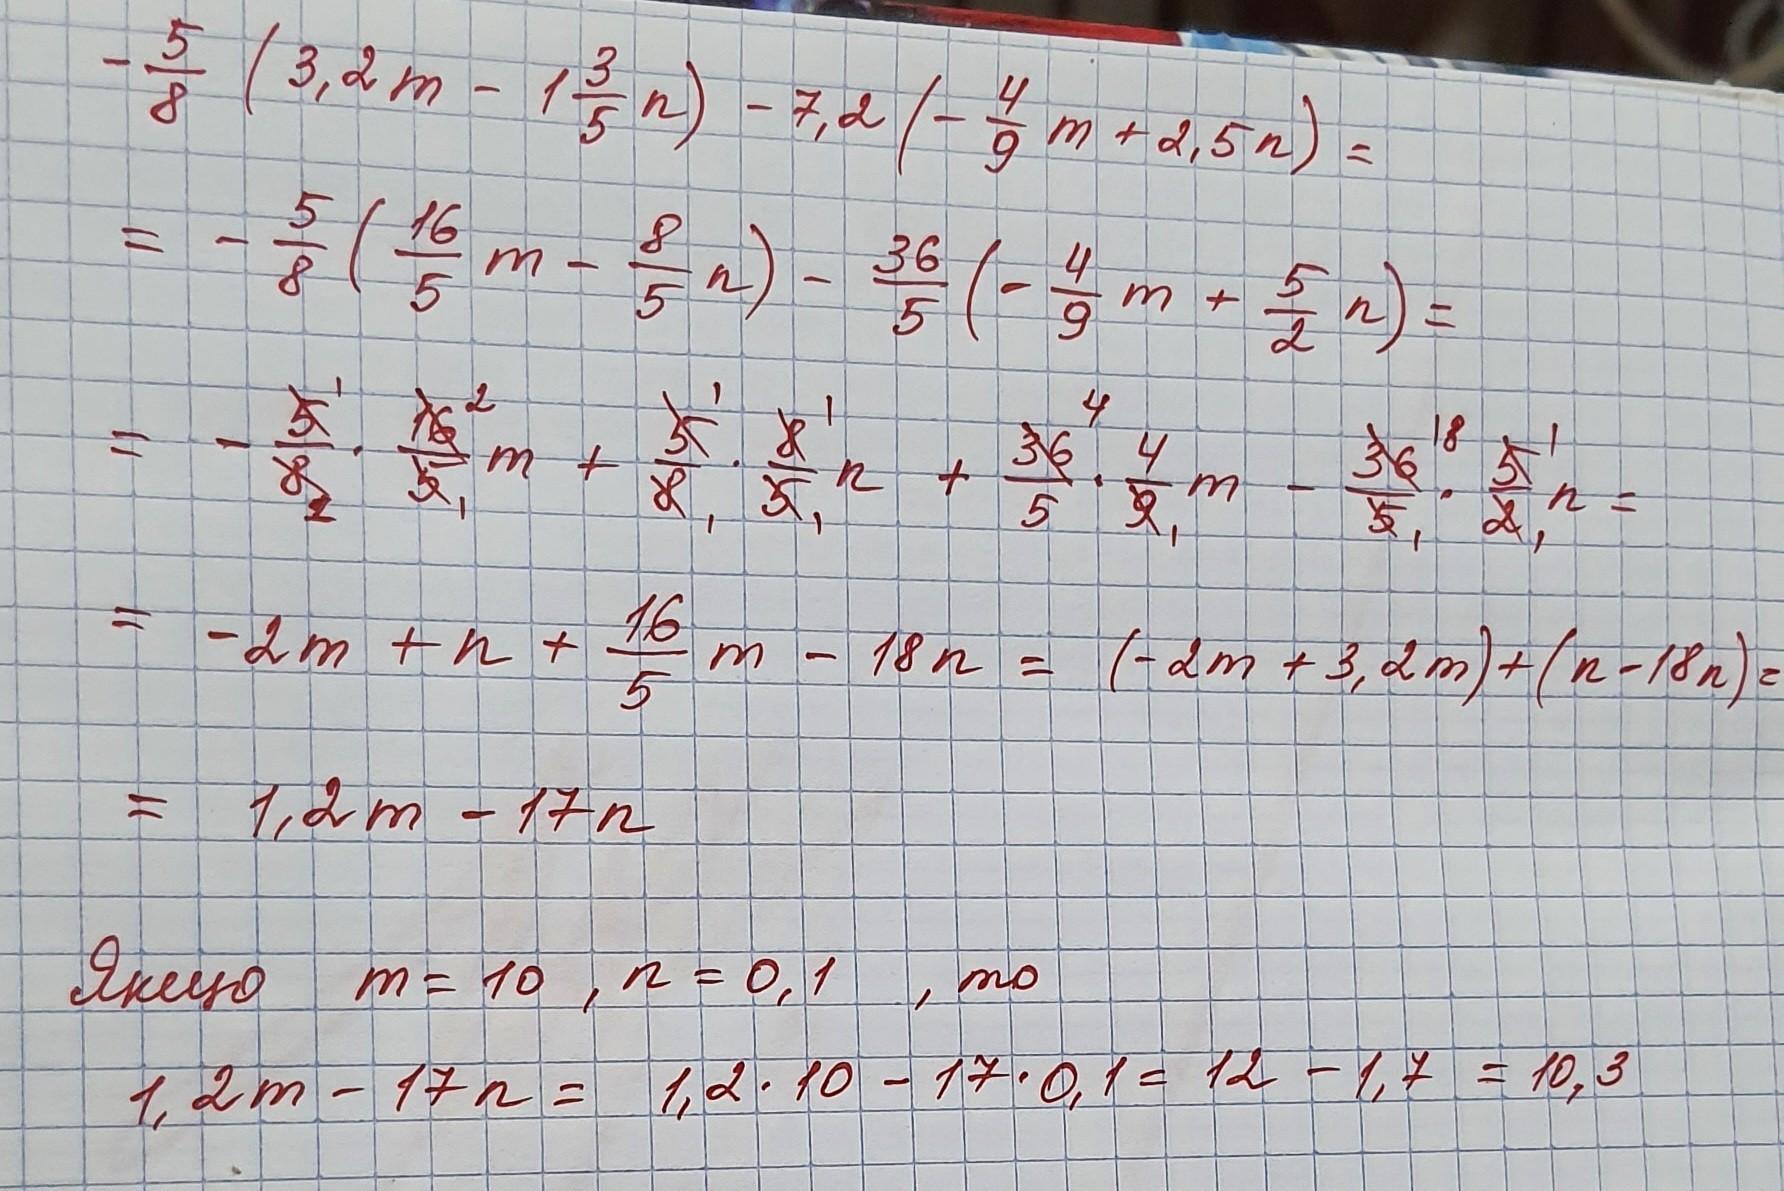 -5/8 (3,2m - 1 3/5 n) - 7,2 (-4/9 m + 2,5n) =
= -5/8 (16/5 m - 8/5 n) - 36/5 (-4/9 m + 5/2 n) =
= -5¹/8₂ · 16²/5₁ m + 5¹/8₁ · 8¹/5₁ n + 36⁴/5 · 4/9₁ m - 36¹⁸/5₁ · 5¹/2₁ n =
= -2m + n + 16/5 m - 18n = (-2m + 3,2m) + (n - 18n) =
= 1,2m - 17n
Якщо m = 10 , n = 0,1 , то
1,2m - 17n = 1,2 · 10 - 17 · 0,1 = 12 - 1,7 = 10,3